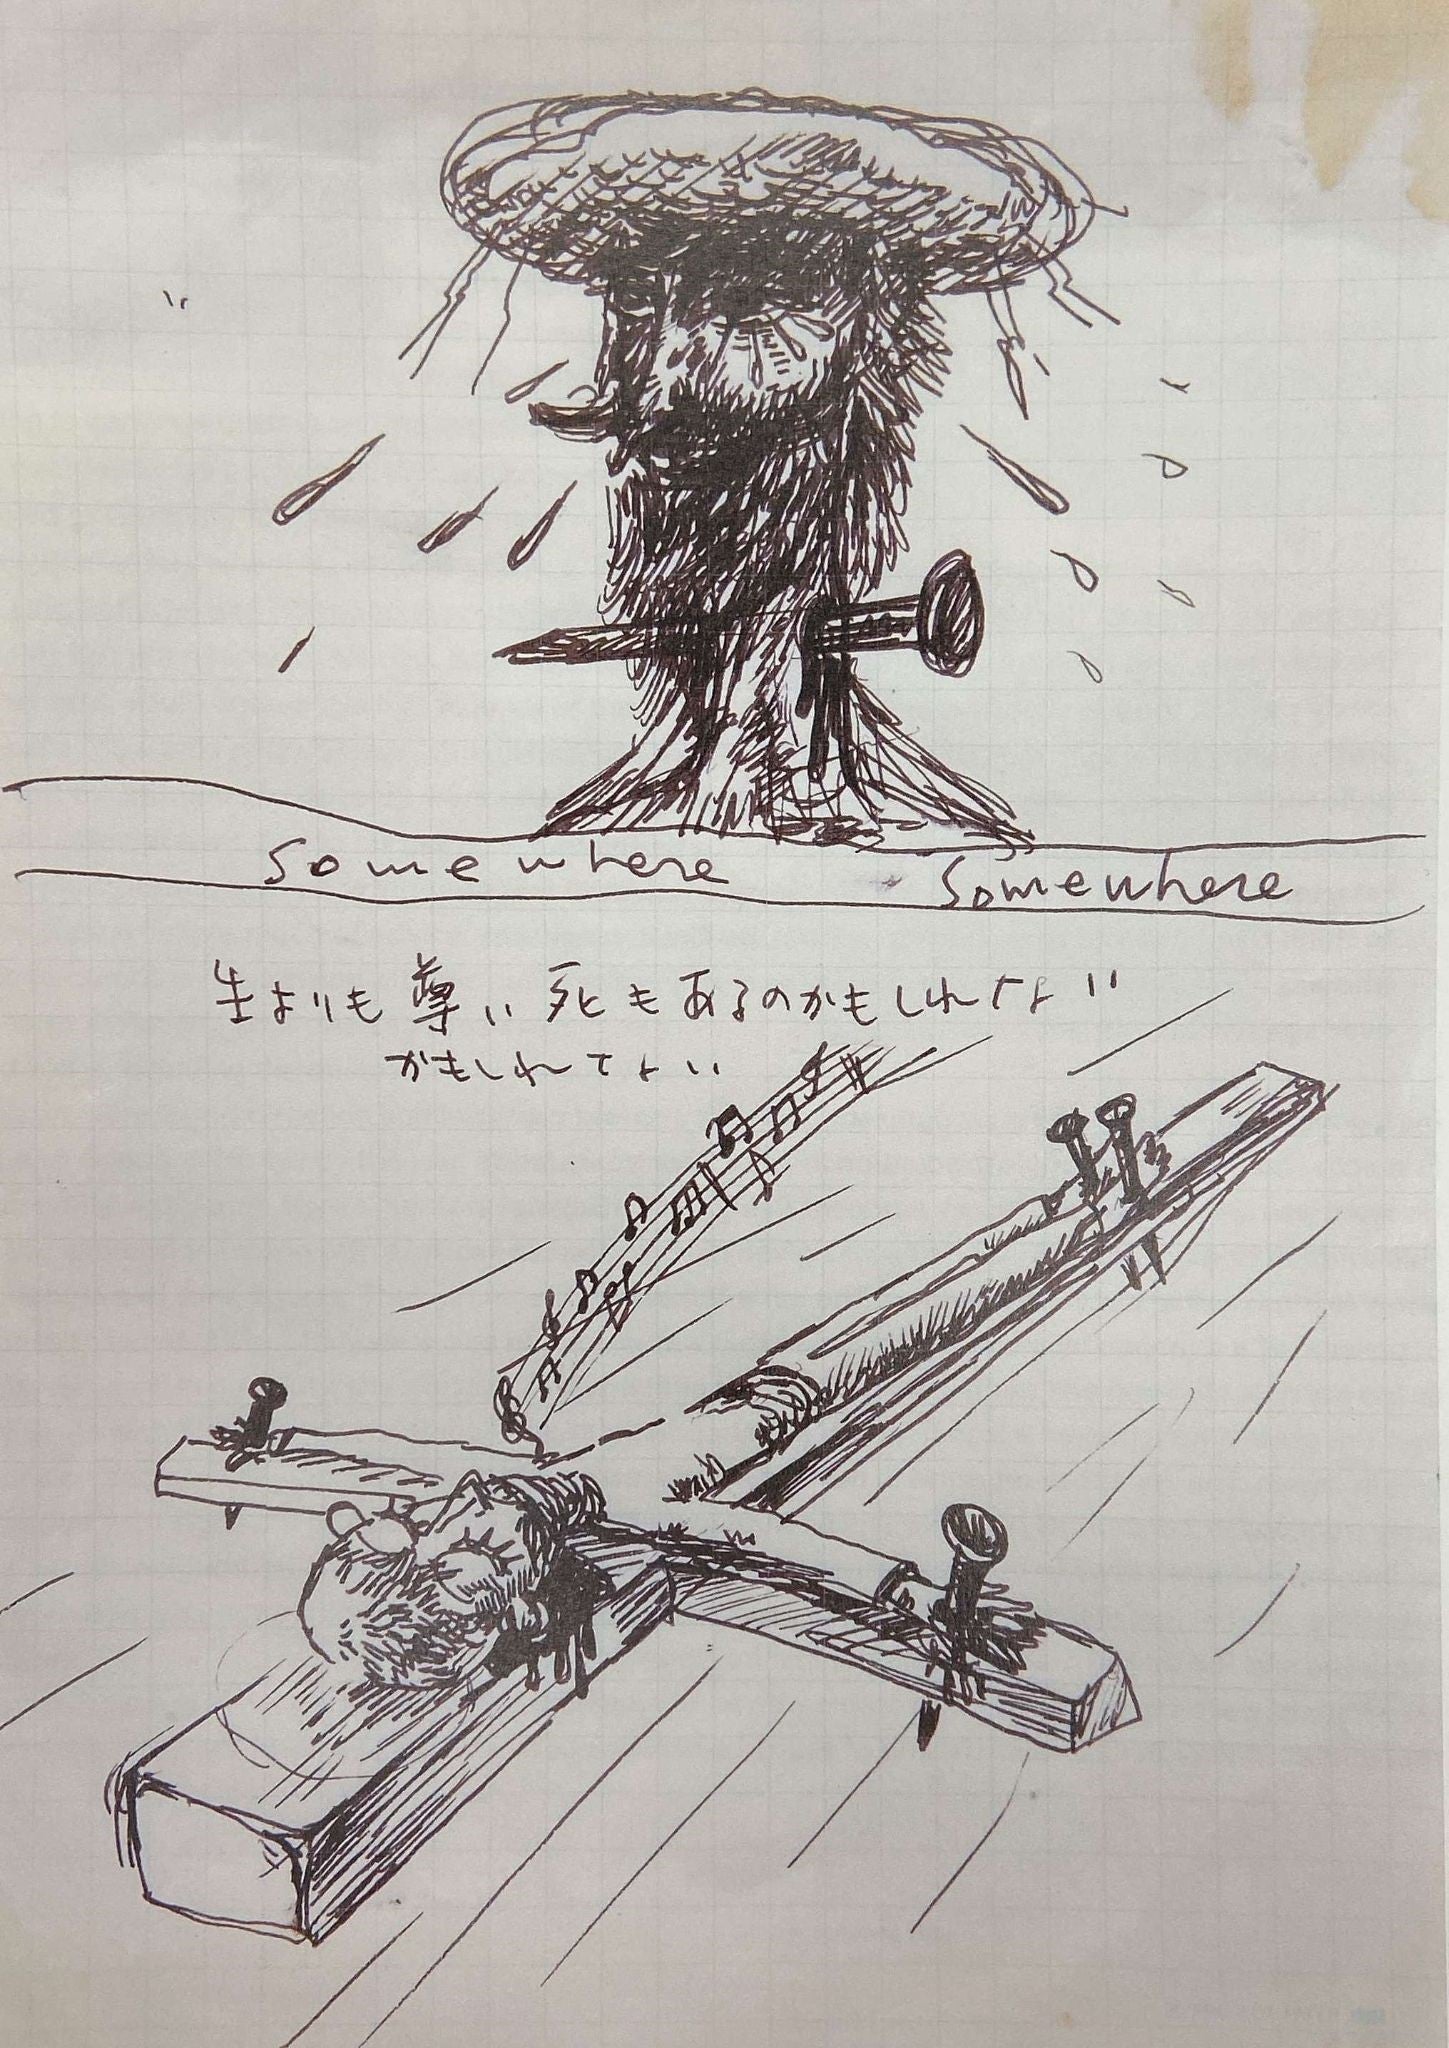 Somewhere Somewhere
生よりも尊い死もあるのかもしれない
かもしれない